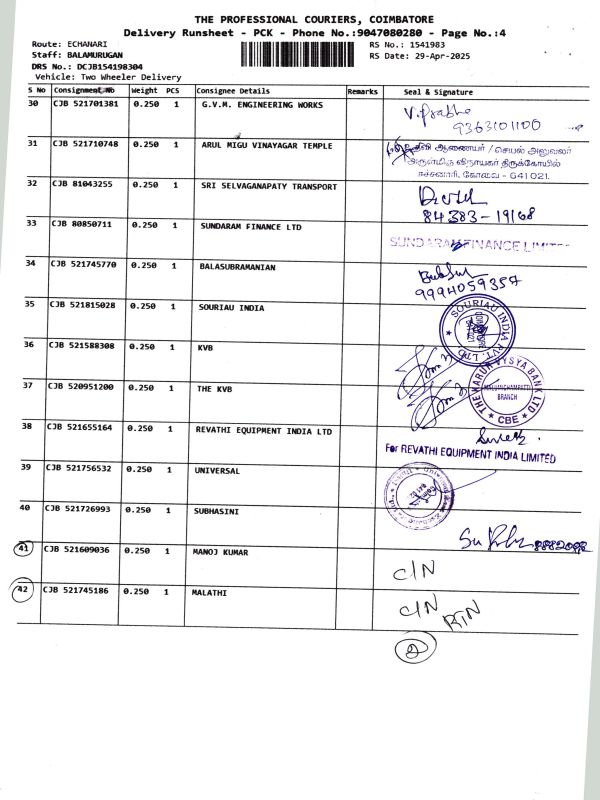 THE PROFESSIONAL COURIERS, COIMBATORE
Delivery Runsheet - PCK - Phone No.:9047080280 - Page No.:4
Route: ECHANARI
RS No.: 1541983
Staff: BALAMURUGAN
RS Date: 29-Apr-2025
DRS No.: DCJB154198304
Vehicle: Two Wheeler Delivery
S No Consignment No Weight PCS Consignee Details Remarks Seal & Signature
30 CJB 521701381 0.250 1 G.V.M. ENGINEERING WORKS
V. Prabhu
9363101100
31 CJB 521710748 0.250 1 ARUL MIGU VINAYAGAR TEMPLE
ஆணையர் / செயல் அலுவலர்
அருள்மிகு விநாயகர் திருக்கோயில்
ஈச்சனாரி, கோவை - 641 021.
32 CJB 81043255 0.250 1 SRI SELVAGANAPATY TRANSPORT
84383-19168
33 CJB 80850711 0.250 1 SUNDARAM FINANCE LTD
SUNDARAM FINANCE LIMITED
34 CJB 521745770 0.250 1 BALASUBRAMANIAN
9994059357
35 CJB 521815028 0.250 1 SOURIAU INDIA
SOURIAU INDIA PVT. LTD
36 CJB 521588308 0.250 1 KVB
37 CJB 520951200 0.250 1 THE KVB
THE KARUR VYSYA BANK LTD
BRANCH
CBE
38 CJB 521655164 0.250 1 REVATHI EQUIPMENT INDIA LTD
For REVATHI EQUIPMENT INDIA LIMITED
39 CJB 521756532 0.250 1 UNIVERSAL
40 CJB 521726993 0.250 1 SUBHASINI
41 CJB 521609036 0.250 1 MANOJ KUMAR
C/N
42 CJB 521745186 0.250 1 MALATHI
C/N RTN
2